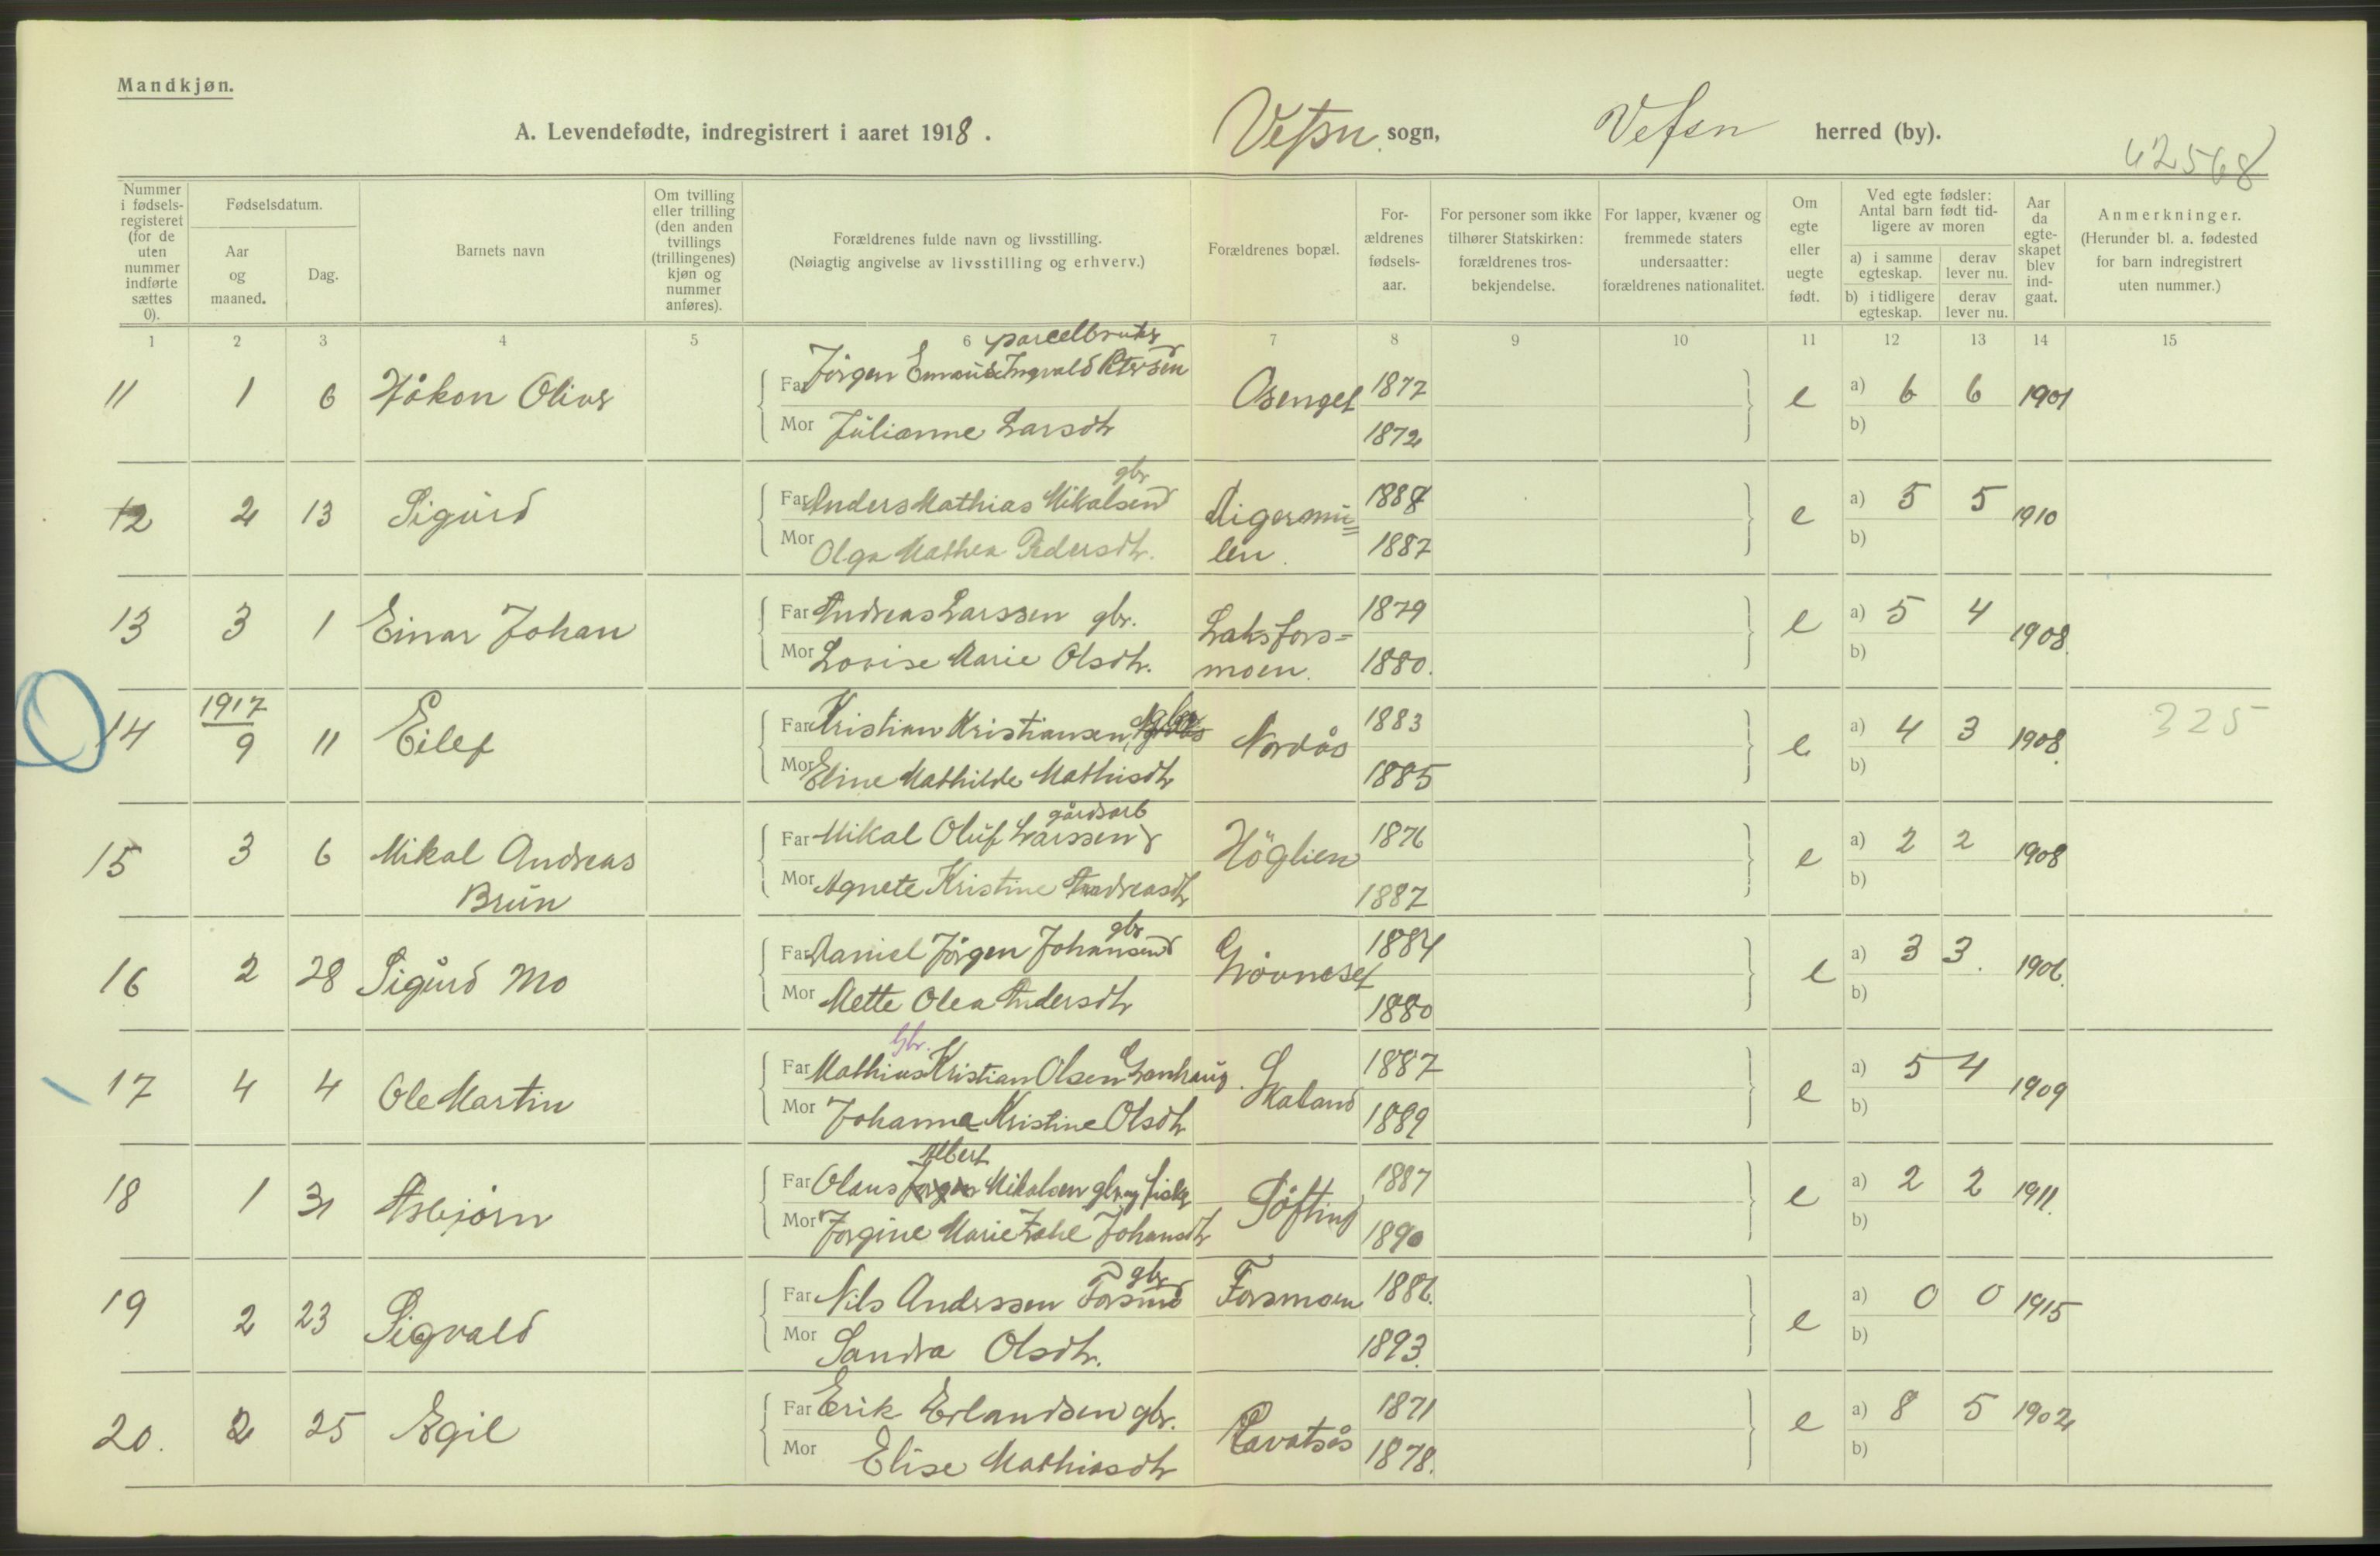 Mandkjøn.
A. Levendefødte, indregistrert i aaret 1918. Vefsn sogn, Vefsn herred (by).
42568
Nummer i fødsels-registeret (for de uten nummer indførte sættes 0).
Fødselsdatum.
Aar og maaned.
Dag.
Barnets navn
Om tvilling eller trilling (den anden tvillings (trillingenes) kjøn og nummer anføres).
Forældrenes fulde navn og livsstilling.
(Nøiagtig angivelse av livsstilling og erhverv.)
Forældrenes bopæl.
For-ældrenes fødsels-aar.
For personer som ikke tilhører Statskirken: forældrenes tros-bekjendelse.
For lapper, kvæner og fremmede staters undersaatter: forældrenes nationalitet.
Om egte eller uegte født.
Ved egte fødsler: Antal barn født tid-ligere av moren
a) i samme egteskap. derav lever nu.
b) i tidligere egteskap. derav lever nu.
Aar da egte-skapet blev ind-gaat.
Anmerkninger.
(Herunder bl. a. fødested for barn indregistrert uten nummer.)
1 2 3 4 5 6 7 8 9 10 11 12 13 14 15
parcelbruker
11 1 6 Håkon Oliver Far Jörgen Ingvald Petersen Osenget 1872 e a) 6 6 1901
Mor Julianne Larsdtr 1872 b)
gbr
12 2 13 Sigurd Far Anders Mathias Mikalsen 1888 e a) 5 5 1910
Mor Olga Mathea Pedersdtr. len. 1887 b)
13 3 1 Einar Johan Far Andreas Larssen gbr. Laksfors= 1879 e a) 5 4 1908.
Mor Lovise Marie Olsdtr. moen. 1880. b)
14 1917 9 11 Eilef Far Kristian Kristiansen, Nordås 1883 e a) 4 3 1908. 325
Mor Eline Mathilde Mathisdtr 1885 b)
gårdsarb
15 3 6 Mikal Andreas Far Mikal Oluf Larssen Höglien 1876 e a) 2 2 1908
Brun Mor Agnete Kristine Andreasdtr 1887 b)
gbr
16 2 28 Sigurd Mo Far Daniel Jörgen Johansen 1884 e a) 3 3. 1906.
Mor Mette Olea Andersdtr 1880 b)
Gbr.
17 4 4 Ole Martin Far Mathias Kristian Olsen Granhaug. Skaland 1887 e a) 5 4 1909
Mor Johanna Kristine Olsdtr 1889 b)
Albert
18 1 31 Asbjørn Far Olaus Jørgen Mikalsen gbr. og fisker Söfting 1887 e a) 2 2 1911.
Mor Jorgine Marie Johansdtr 1890 b)
gbr
19 2 23 Sigvald Far Nils Anderssen Forsmo Forsmoen 1886. e a) 0 0 1915
Mor Sandra Olsdtr. 1893. b)
20. 2 25 Egil Far Erik Erlandsen gbr. Ravatsås 1871 e a) 8 5 1902
Mor Elise Mathiasdtr 1878. b)